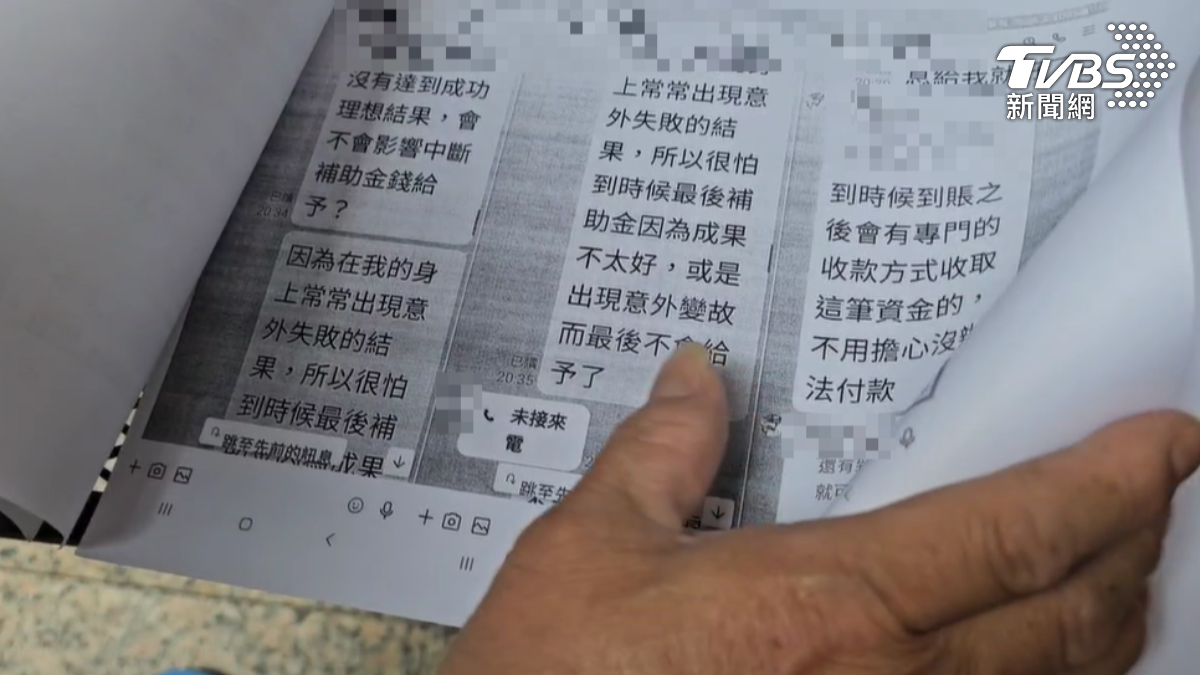 TVBS
新聞網
沒有達到成功
理想結果，會
不會影響中斷
補助金錢給
予？
20:34
因為在我的身
上常常出現意
外失敗的結
果，所以很怕
到時候最後補
跳至先前的訊息
成果
上常常出現意
外失敗的結
果，所以很怕
到時候最後補
助金因為成果
不太好，或是
出現意外變故
而最後不會給
予了
已讀
20:35
未接來
電
跳至先
到時候到賬之
後會有專門的
收款方式收取
這筆資金的，
不用擔心沒辦
法付款
還有
就可